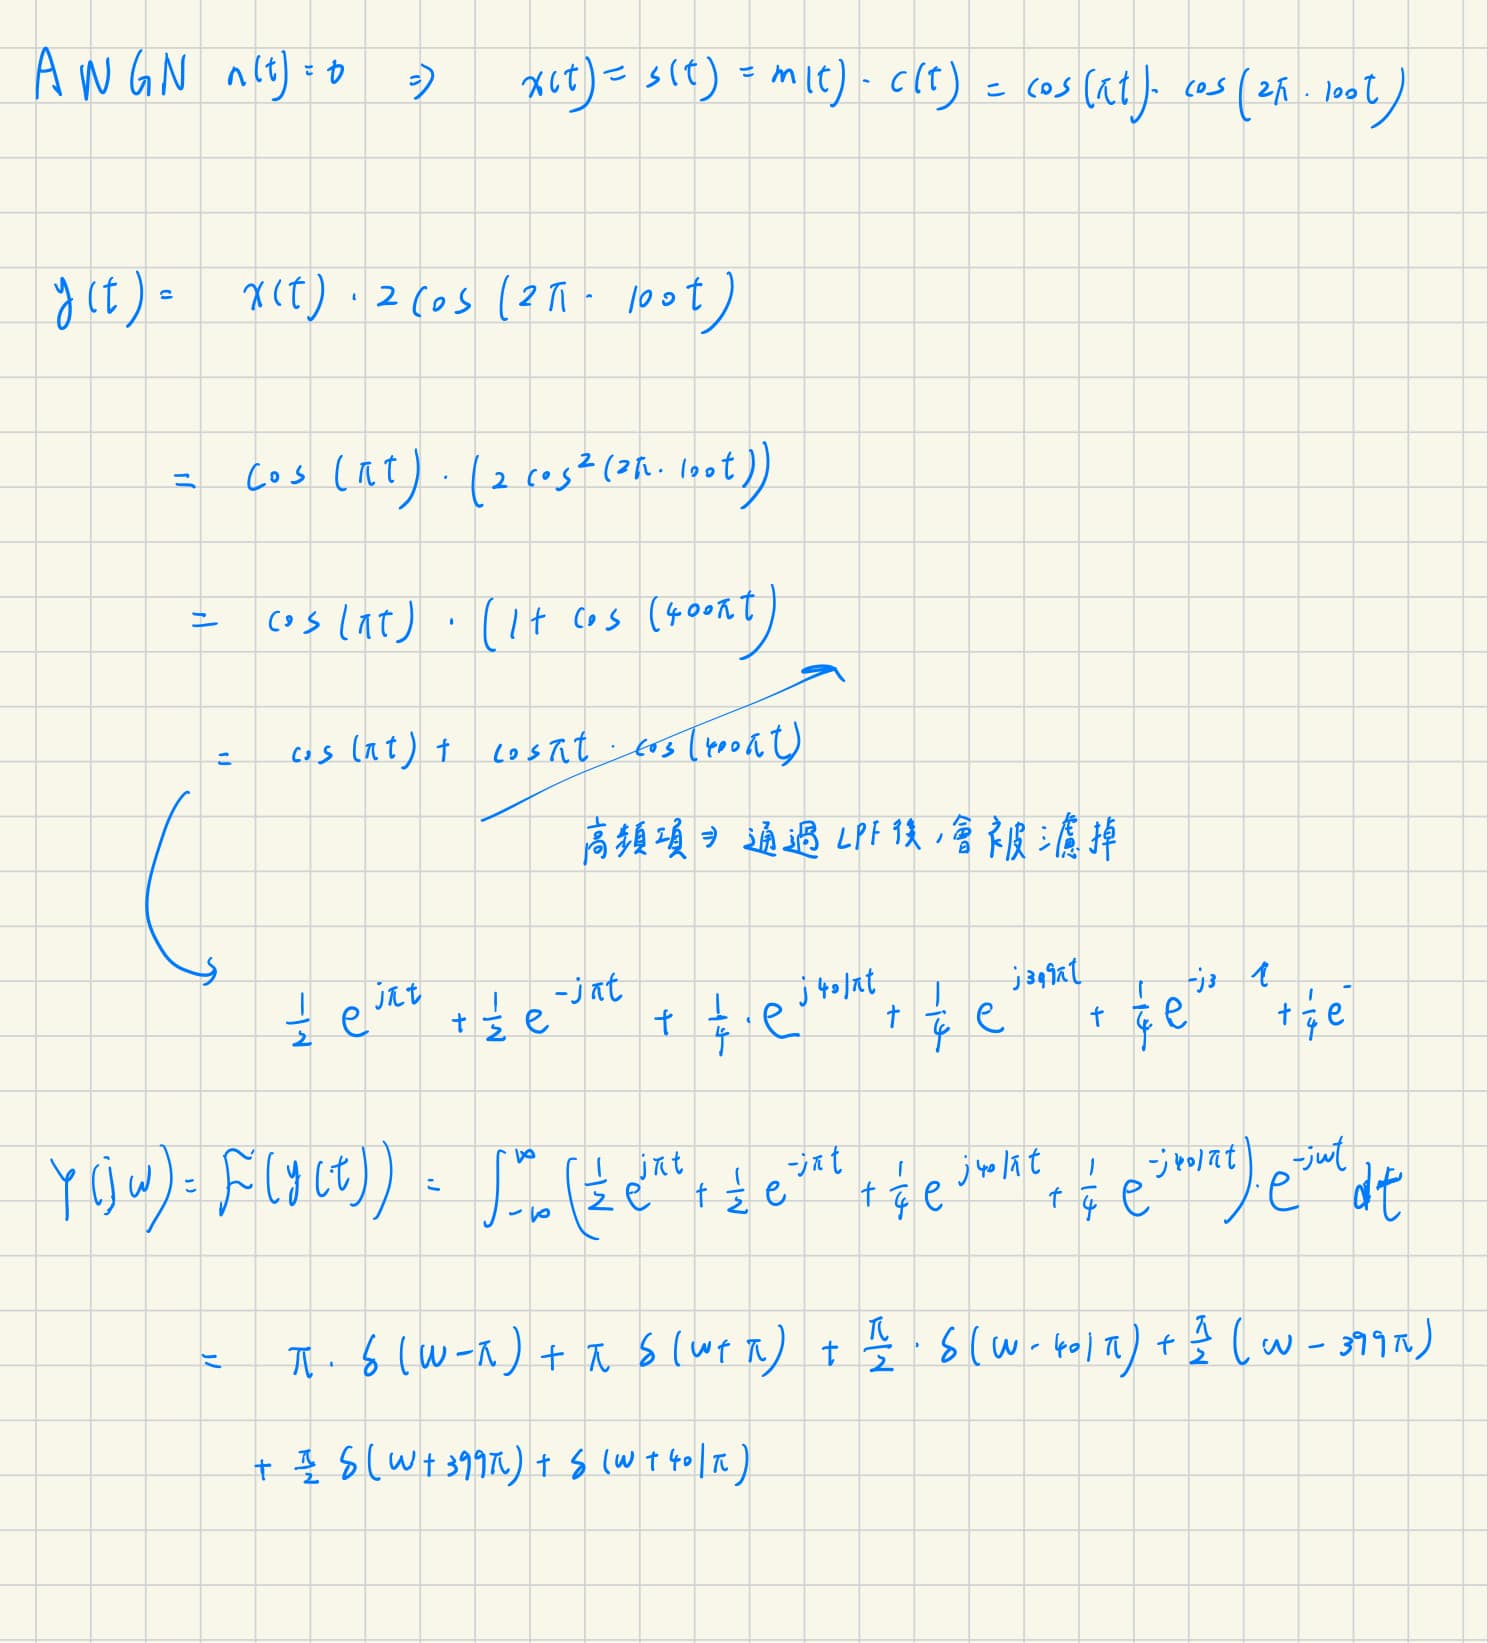 AWGN n(t)=0 ⇒ x(t) = s(t) = m(t) · c(t) = cos(πt) · cos(2π · 100t)
y(t) = x(t) · 2cos(2π · 100t)
= cos(πt) · (2cos²(2π · 100t))
= cos(πt) · (1+ cos(400πt)
= cos(πt) + cosπt · cos(400πt)
高頻項 ⇒ 通過LPF後,會被濾掉
1/2 e^{jπt} + 1/2 e^{-jπt} + 1/4 · e^{j401πt} + 1/4 e^{j399πt} + 1/4 e^{-j3 t} + 1/4 e^{-}
Y(jω) = F(y(t)) = ∫_{-∞}^{∞} (1/2 e^{jπt} + 1/2 e^{-jπt} + 1/4 e^{j401πt} + 1/4 e^{-j401πt}) · e^{-jωt} dt
= π · δ(ω-π) + π δ(ω+π) + π/2 · δ(ω-401π) + π/2 (ω-399π)
+ π/2 δ(ω+399π) + δ(ω+401π)